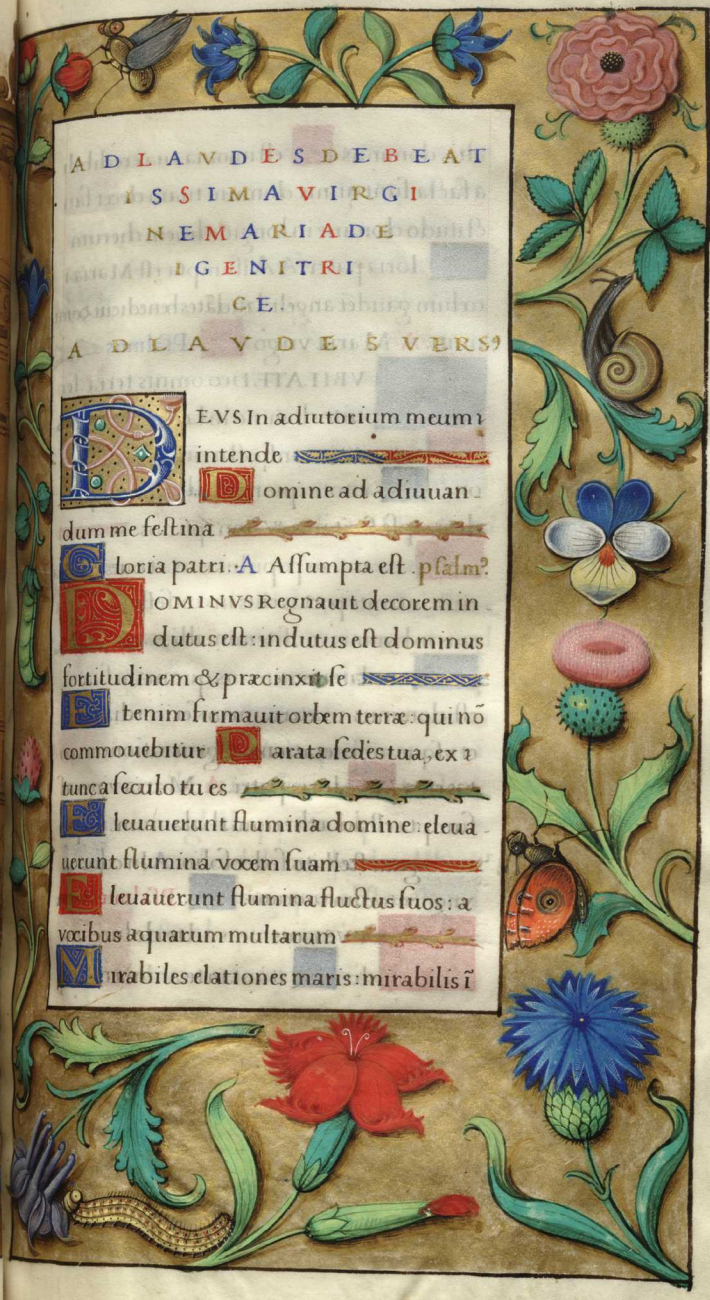 AD LAVDES DE BEAT
ISSIMA VIRGI
NE MARIA DE
IGENITRI
CE.
AD LAVDES VERS9
DEVS In adiutorium meum ı
intende
Domine ad adiuuan
dum me festina
Gloria patri. A Assumpta est. psalm9.
DOMINVS Regnauit decorem in
dutus est: indutus est dominus
fortitudinem & præcinxit se
Etenim firmauit orbem terræ: qui nō
commouebitur Parata sedes tua, ex ı
tunc a seculo tu es
Eleuauerunt flumina domine: eleua
uerunt flumina vocem suam
Eleuauerunt flumina fluctus suos: a
vocibus aquarum multarum
Mirabiles elationes maris: mirabilis ī